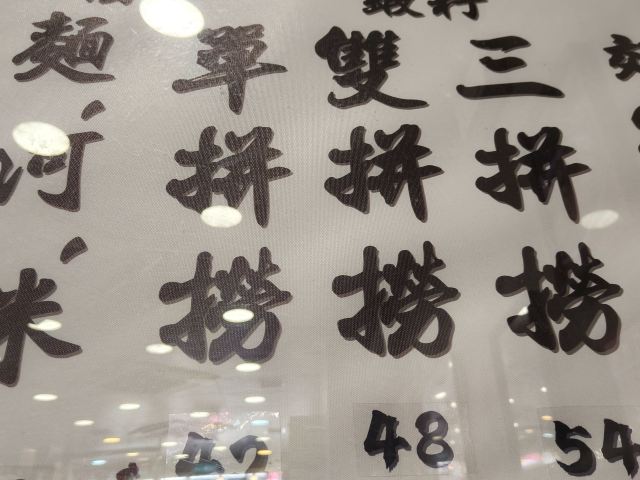 單拼撈
雙拼撈
三拼撈
麵
河
米
48
54